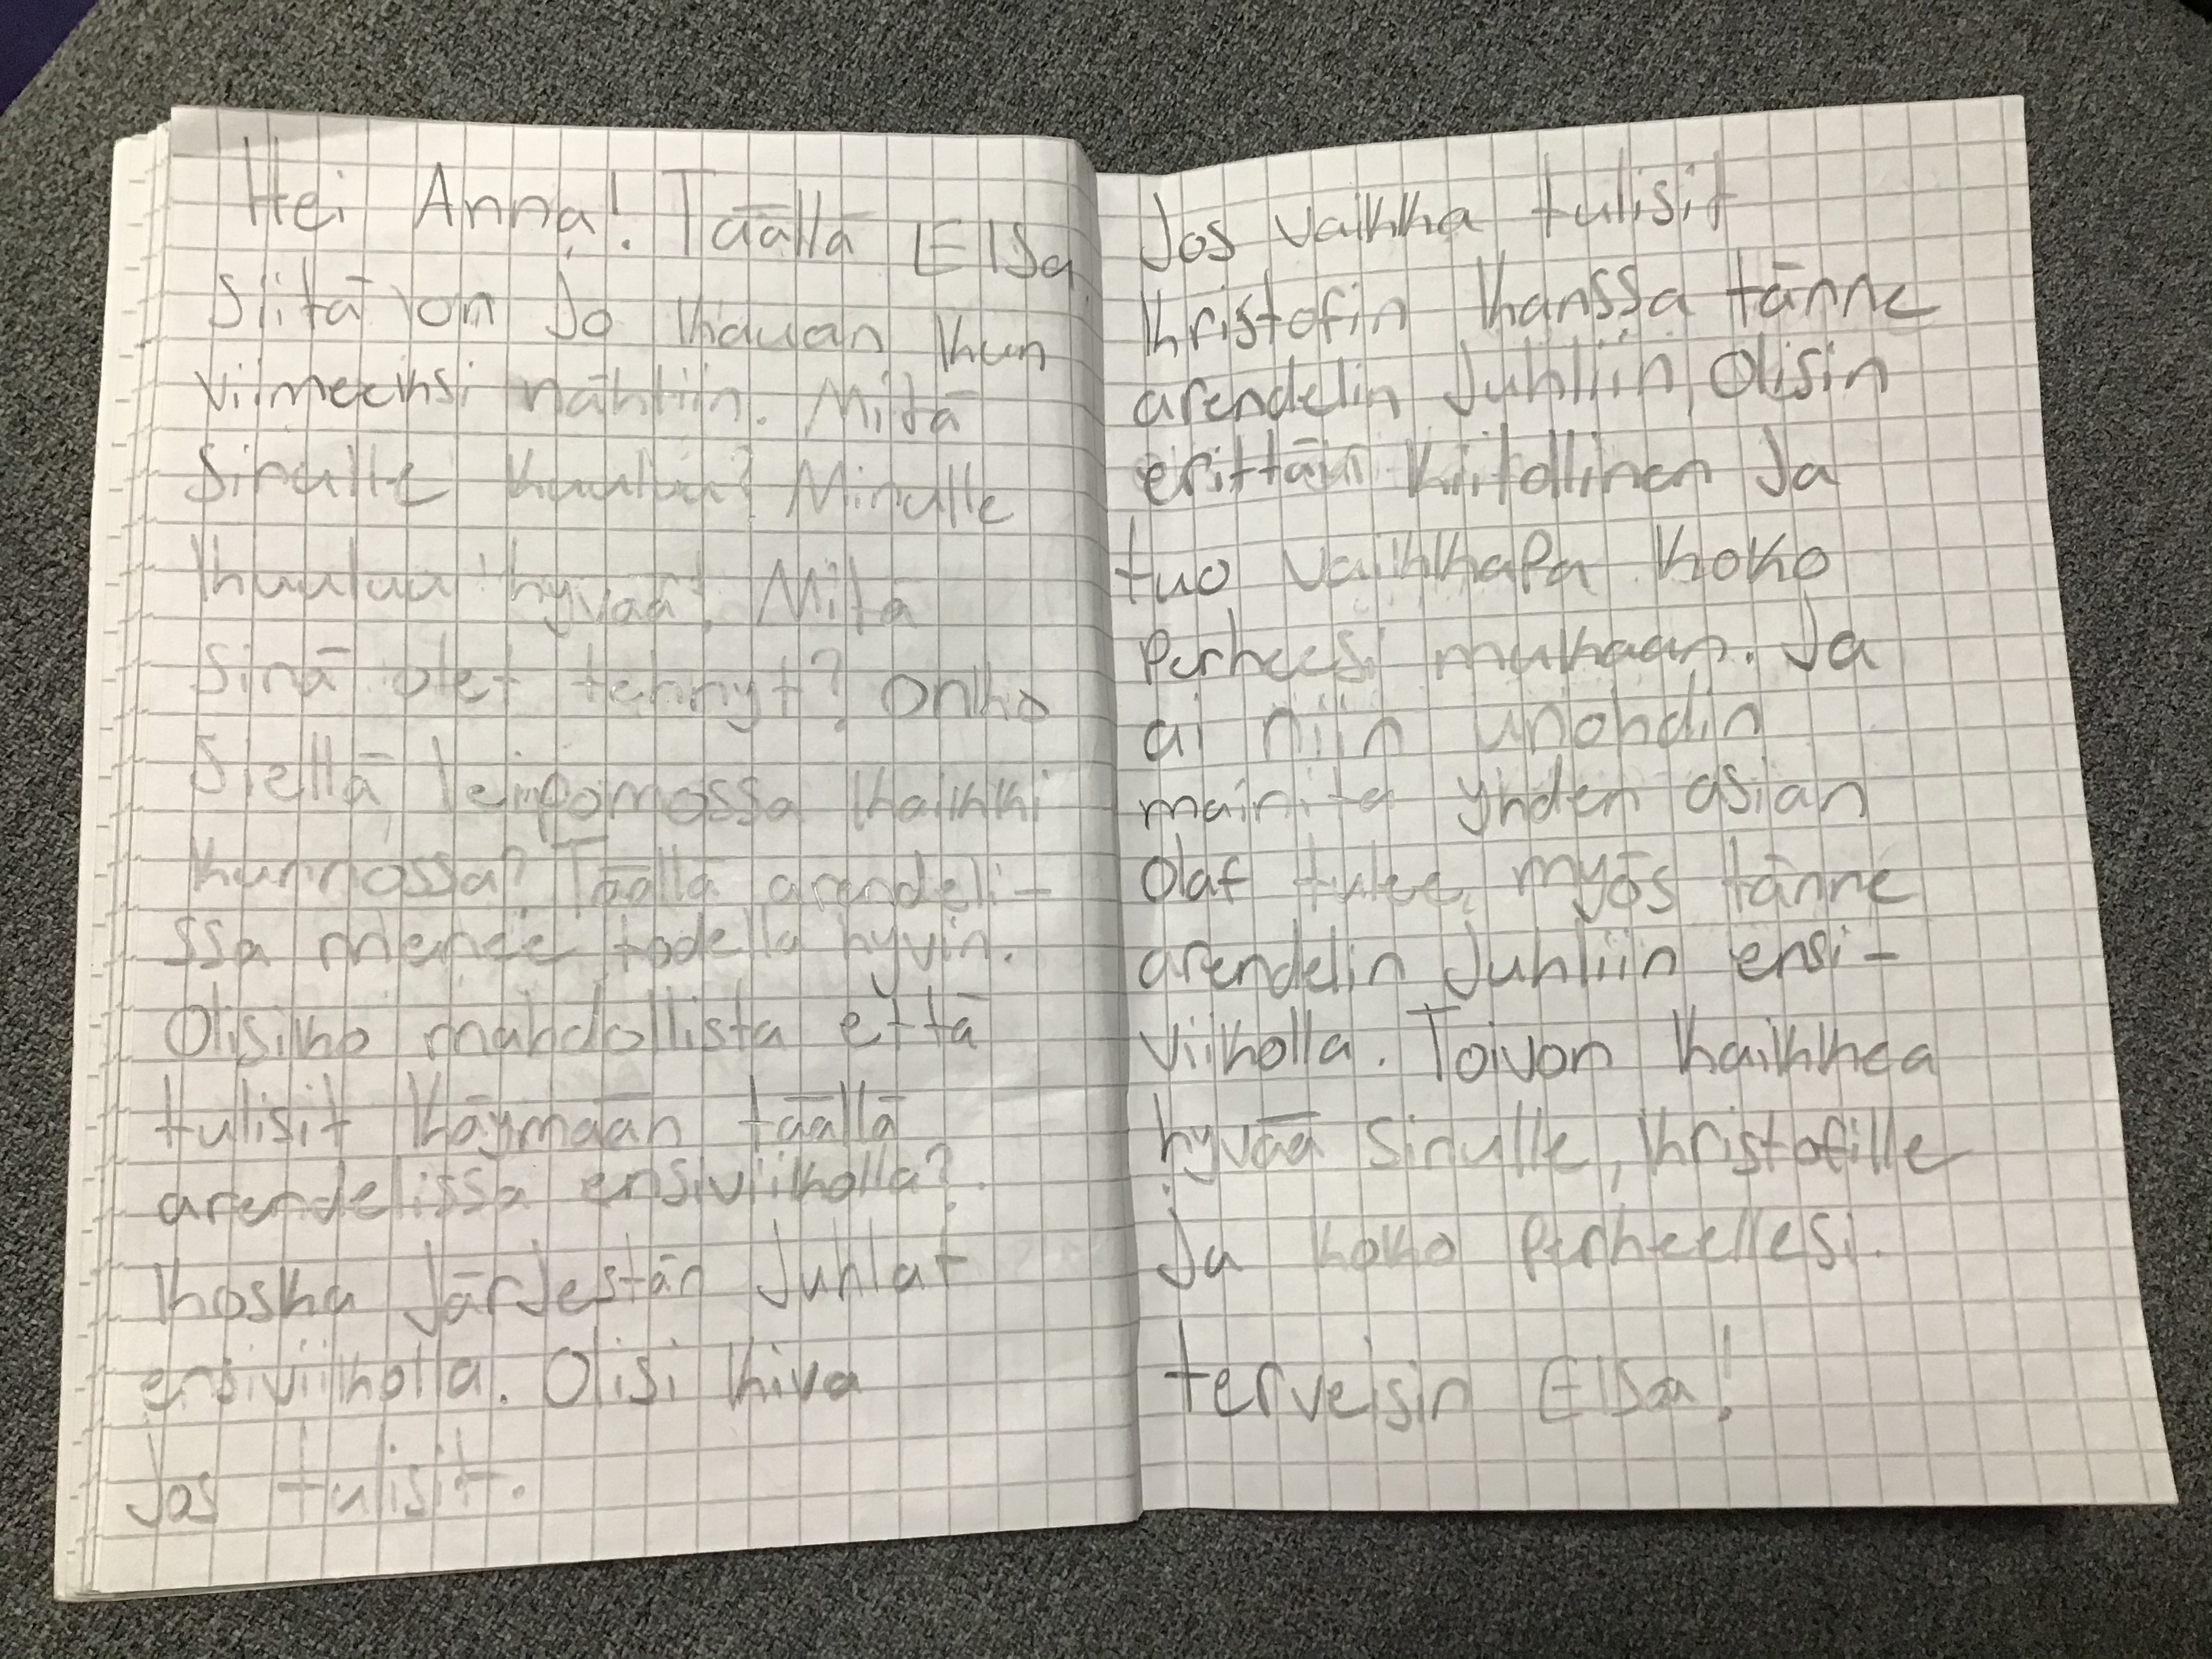 Hei Anna! Täällä Elsa.
Siitä on jo kauan kun
viimeeksi nähtiin. Mitä
sinulle kuuluu? Minulle
kuuluu hyvää. Mitä
sinä olet tehnyt? Onko
siellä leipomossa kaikki
kunnossa? Täällä arendeli-
ssa menee todella hyvin.
Olisiko mahdollista että
tulisit käymään täällä
arendelissa ensiviikolla?.
koska järjestän juhlat
ensiviikolla. Olisi kiva
jos tulisit.
Jos vaikka tulisit
kristofin kanssa tänne
arendelin juhliin, Olisin
erittäin kiitollinen ja
tuo vaikkapa koko
perheesi mukaan. Ja
ai niin unohdin
mainita yhden asian
Olaf tulee myös tänne
arendelin juhliin ensi-
viikolla. Toivon kaikkea
hyvää sinulle, kristofille
ja koko perheellesi.
terveisin Elsa!